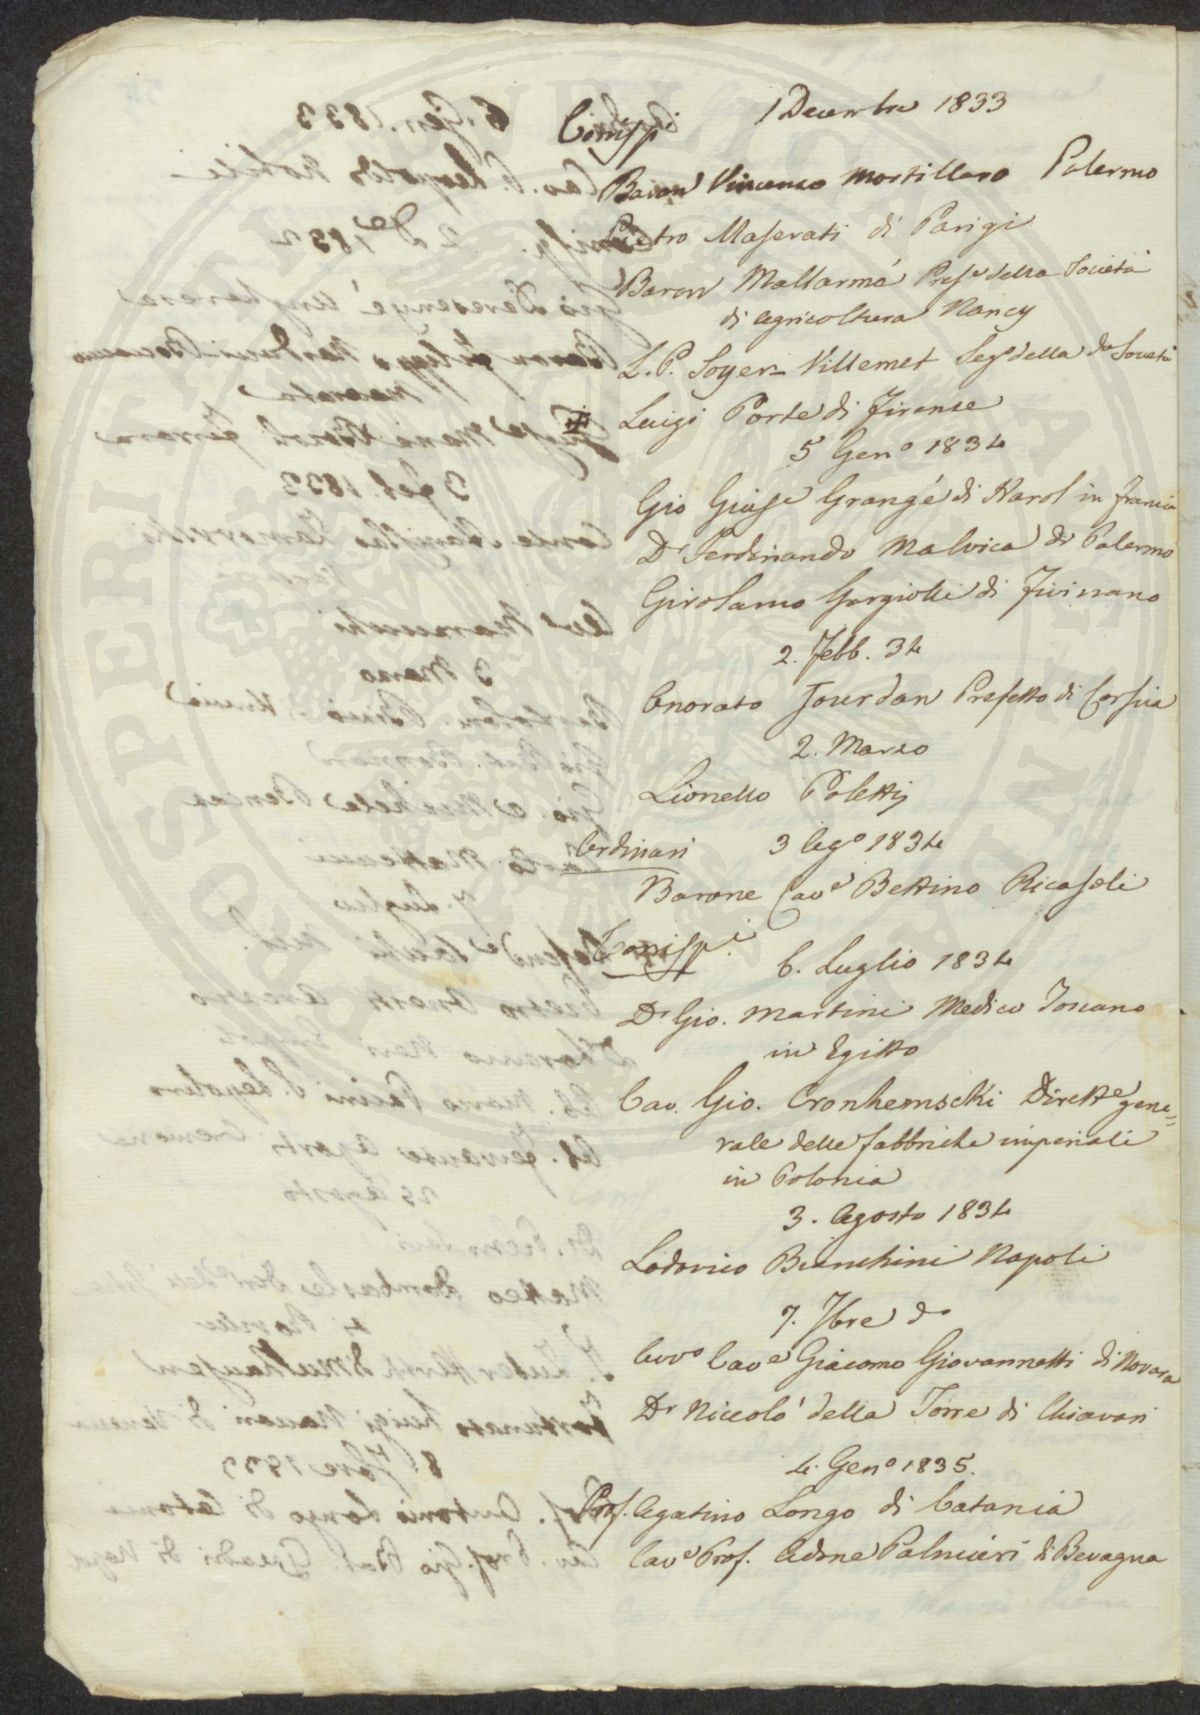 Corrispi
1 Decembre 1833
Baron Vincenzo Mortillaro Palermo
Pietro Maserati di Parigi
Baron Mallarmé Prese della Società
di Agricoltura Nancy
L. P. Soyer-Villemet Sego della da Società
Luigi Porte di Firenze
5 Geno 1834
Gio Giuse Grangé di Harol in francia
Dr Ferdinando Malvica di Palermo
Girolamo Gargiolli di Fivizzano
2. Febb. 34
Onorato Jourdan Prefetto di Corsica
2. Marzo
Lionello Poletti
Ordinari 3 Ago 1834
Barone Cave Bettino Ricasoli
Corrispi.
6. Luglio 1834
Dr Gio. Martini Medico Toscano
in Egitto
Cav. Gio. Cronhemscki Dirette gene=
rale delle fabbriche imperiali
in Polonia
3. Agosto 1834
Lodovico Bianchini Napoli
7. 7bre do
Avvo Cave Giacomo Giovannetti di Novara
Dr Niccolò della Torre di Chiavari
4. Geno 1835.
Prof. Agatino Longo di Catania
Cave Prof. Adone Palmieri di Bevagna